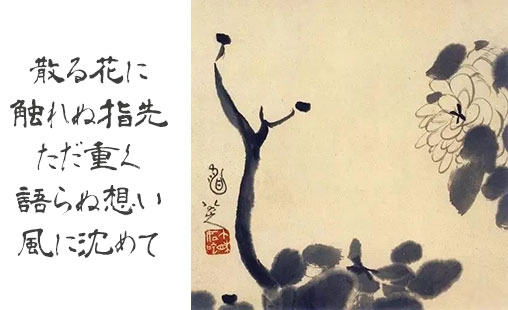 散る花に
触れぬ指先
ただ重く
語らぬ想い
風に沈めて